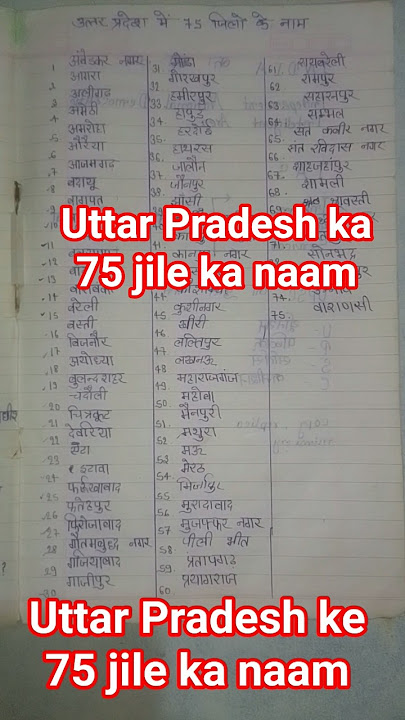 उत्तर प्रदेश में 75 जिलों के नाम
1 अंबेडकर नगर
आगरा
2
3 अलीगढ़
4 अमेठी
5 अमरोहा
6 औरैया
7 आजमगढ़
8 बदायू
बागपत
बरेली
15 बस्ती
16 बिजनौर
17 अयोध्या
18 बुलन्दशहर
19 चंदौली
20 चित्रकूट
21 देवरिया
22 एटा
23 इटावा
24 फर्रुखाबाद
25 फतेहपुर
26 फिरोजाबाद
27 गौतमबुद्ध नगर
28 गाजियाबाद
29 गाजीपुर
30
31. गोंडा
32 गोरखपुर
33 हमीरपुर
34. हापुड़
35. हरदोई
36. हाथरस
37. जालौन
38. जौनपुर
39. झाँसी
41. कानपुर नगर
45 कुशीनगर
46 खीरी
47 ललितपुर
48 लखनऊ
49 महाराजगंज
50. महोबा
51. मैनपुरी
52. मथुरा
53. मऊ
54. मेरठ
55. मिर्जापुर
56. मुरादाबाद
57. मुजफ्फर नगर
58. पीली भीत
59. प्रतापगढ़
60 प्रयागराज
61. रायबरेली
62 रामपुर
63 सहारनपुर
64. सम्भल
65. संत कबीर नगर
66. संत रविदास नगर
67. शाहजहांपुर
68. शामली
श्रावस्ती
सोनभद्र
74.
75. वाराणसी
Uttar Pradesh ka
75 jile ka naam
Uttar Pradesh ke
75 jile ka naam